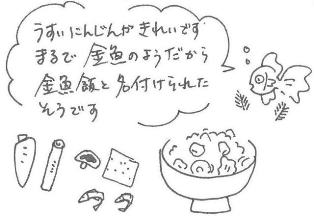 うすいにんじんがきれいです
まるで金魚のようだから
金魚飯と名付けられた
そうです